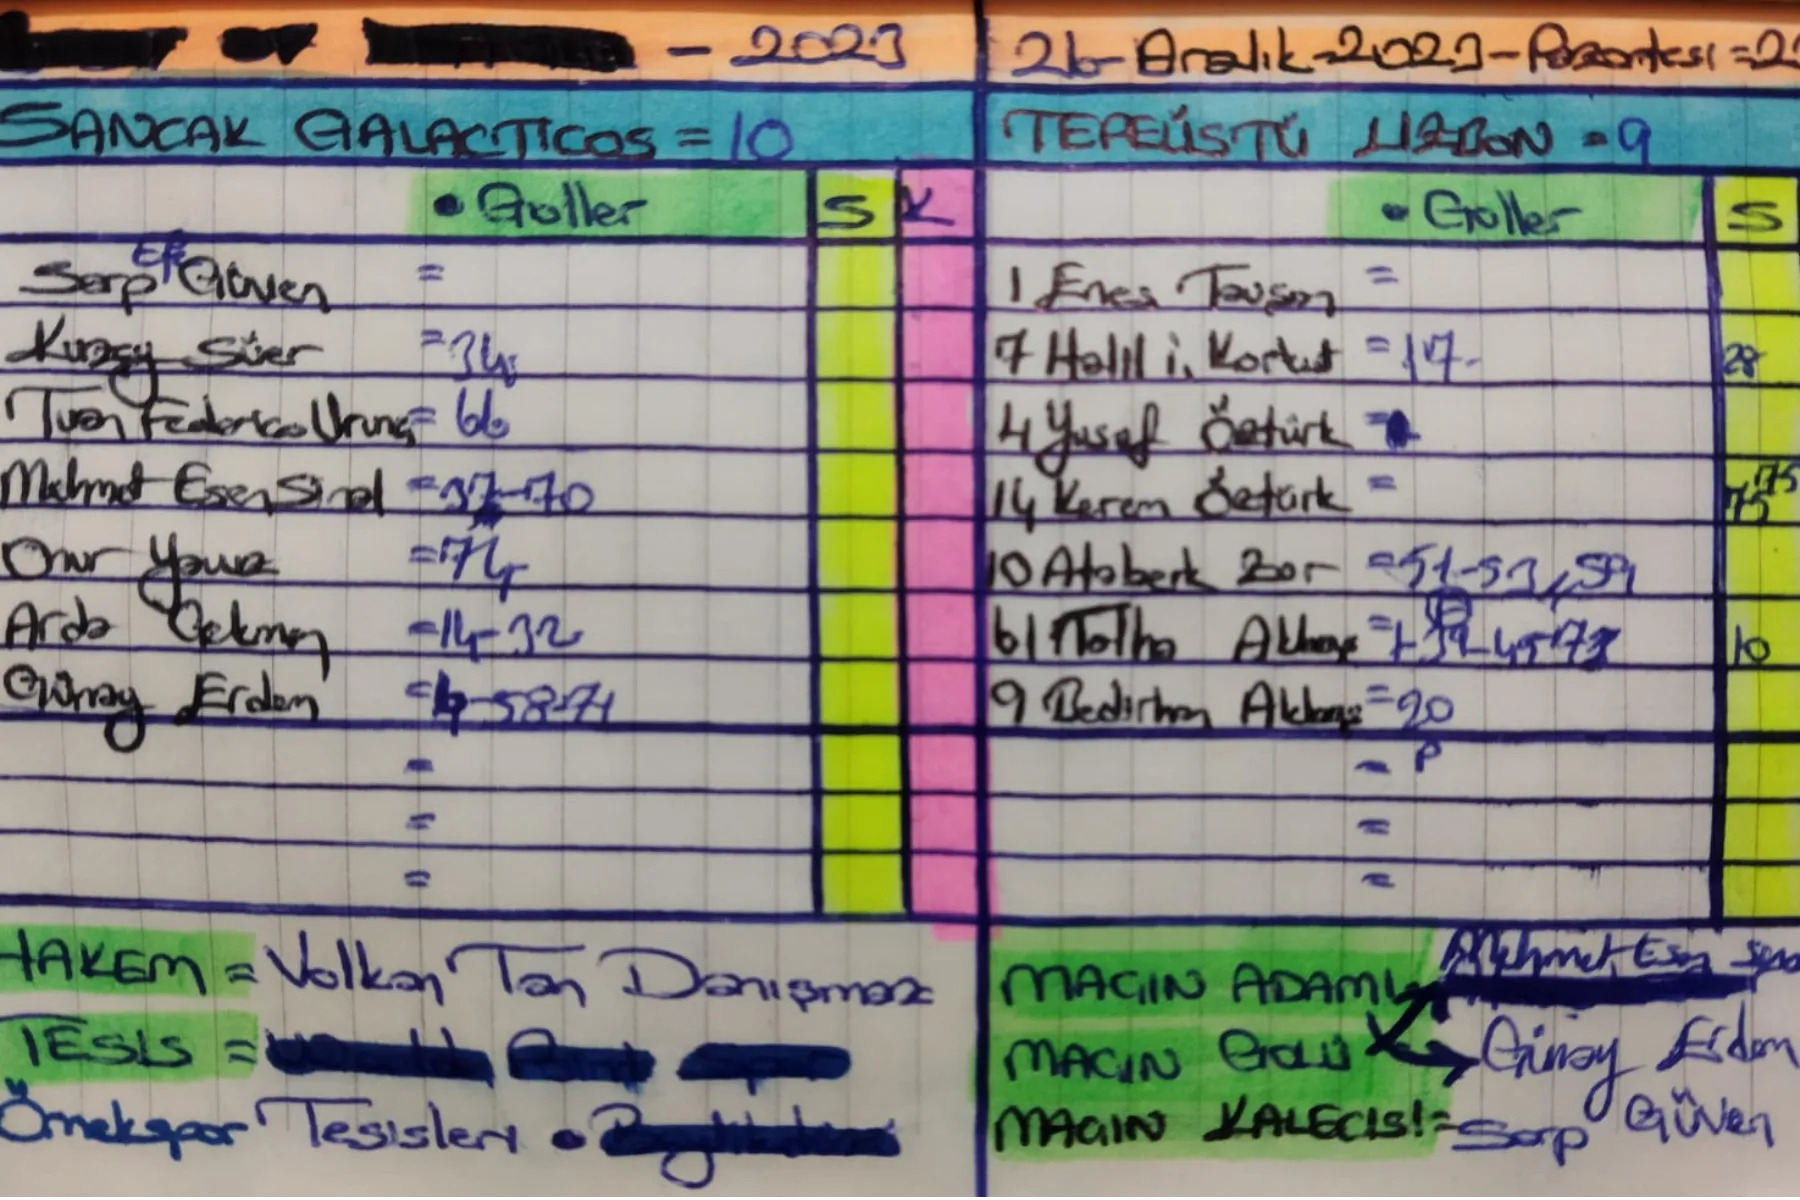 - 2023
26-Aralık-2023-Pazartesi=2
SANCAK GALACTICOS = 10
TEPEÜSTÜ LİZBON = 9
• Goller S K
• Goller S
Sarp Efe Güven =
1 Enes Tavşan =
Kuzey Süer =34
7 Halil i. Korkut =17- 28
Tuan Federico Urung= 66
4 Yusuf Öztürk =
Mehmet Esen Sinal =37-70
14 Kerem Öztürk = 75 75
Onur Yavuz =74
10 Ataberk Zor =51-53,59
Arda Gekmen =14-32
61 Talha Akbaş = 10
Günay Erdem = -58-71
9 Bedirhan Akbaş =20
=
= P
=
=
=
=
HAKEM = Volkan Tan Danışmaz
MAÇIN ADAMI Mehmet Esen
TESİS =
MAÇIN GOLÜ Günay Erdem
Örnekspor Tesisleri •
MAÇIN KALECİSİ= Sarp Güven